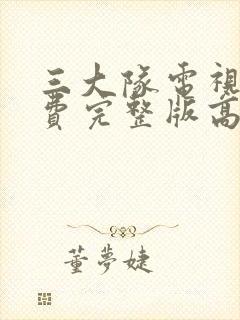 三大隊電視
費完整版高
董夢婕